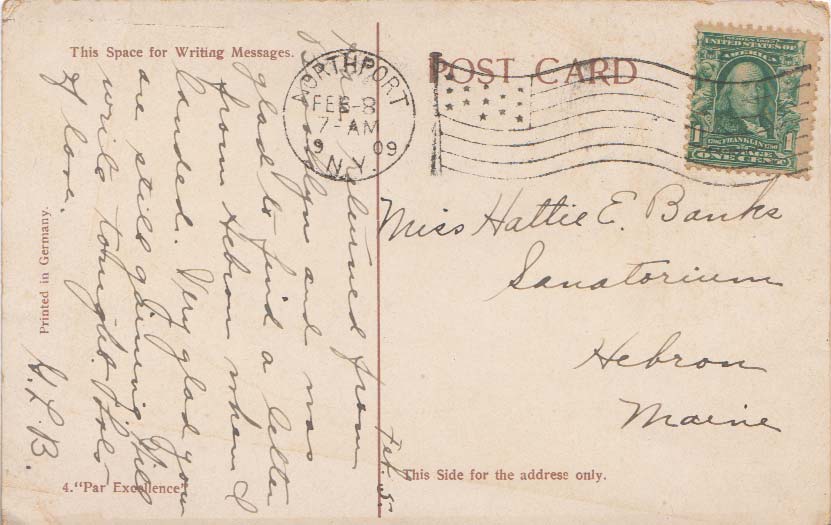 This Space for Writing Messages.
POST CARD
NORTHPORT
FEB-8
7-AM
9 09
N.Y.
SERIES 1902
UNITED STATES OF
AMERICA
1706 FRANKLIN 1790
1 1
ONE CENT
Feb. 5.
returned from
Brooklyn and was
glad to find a letter
from Hebron when I
landed. Very glad you
are still gaining. Will
write tonight. Lots
of love.
H. L. B.
Miss Hattie E. Banks
Sanatorium
Hebron
Maine
Printed in Germany.
4. "Par Excellence"
This Side for the address only.